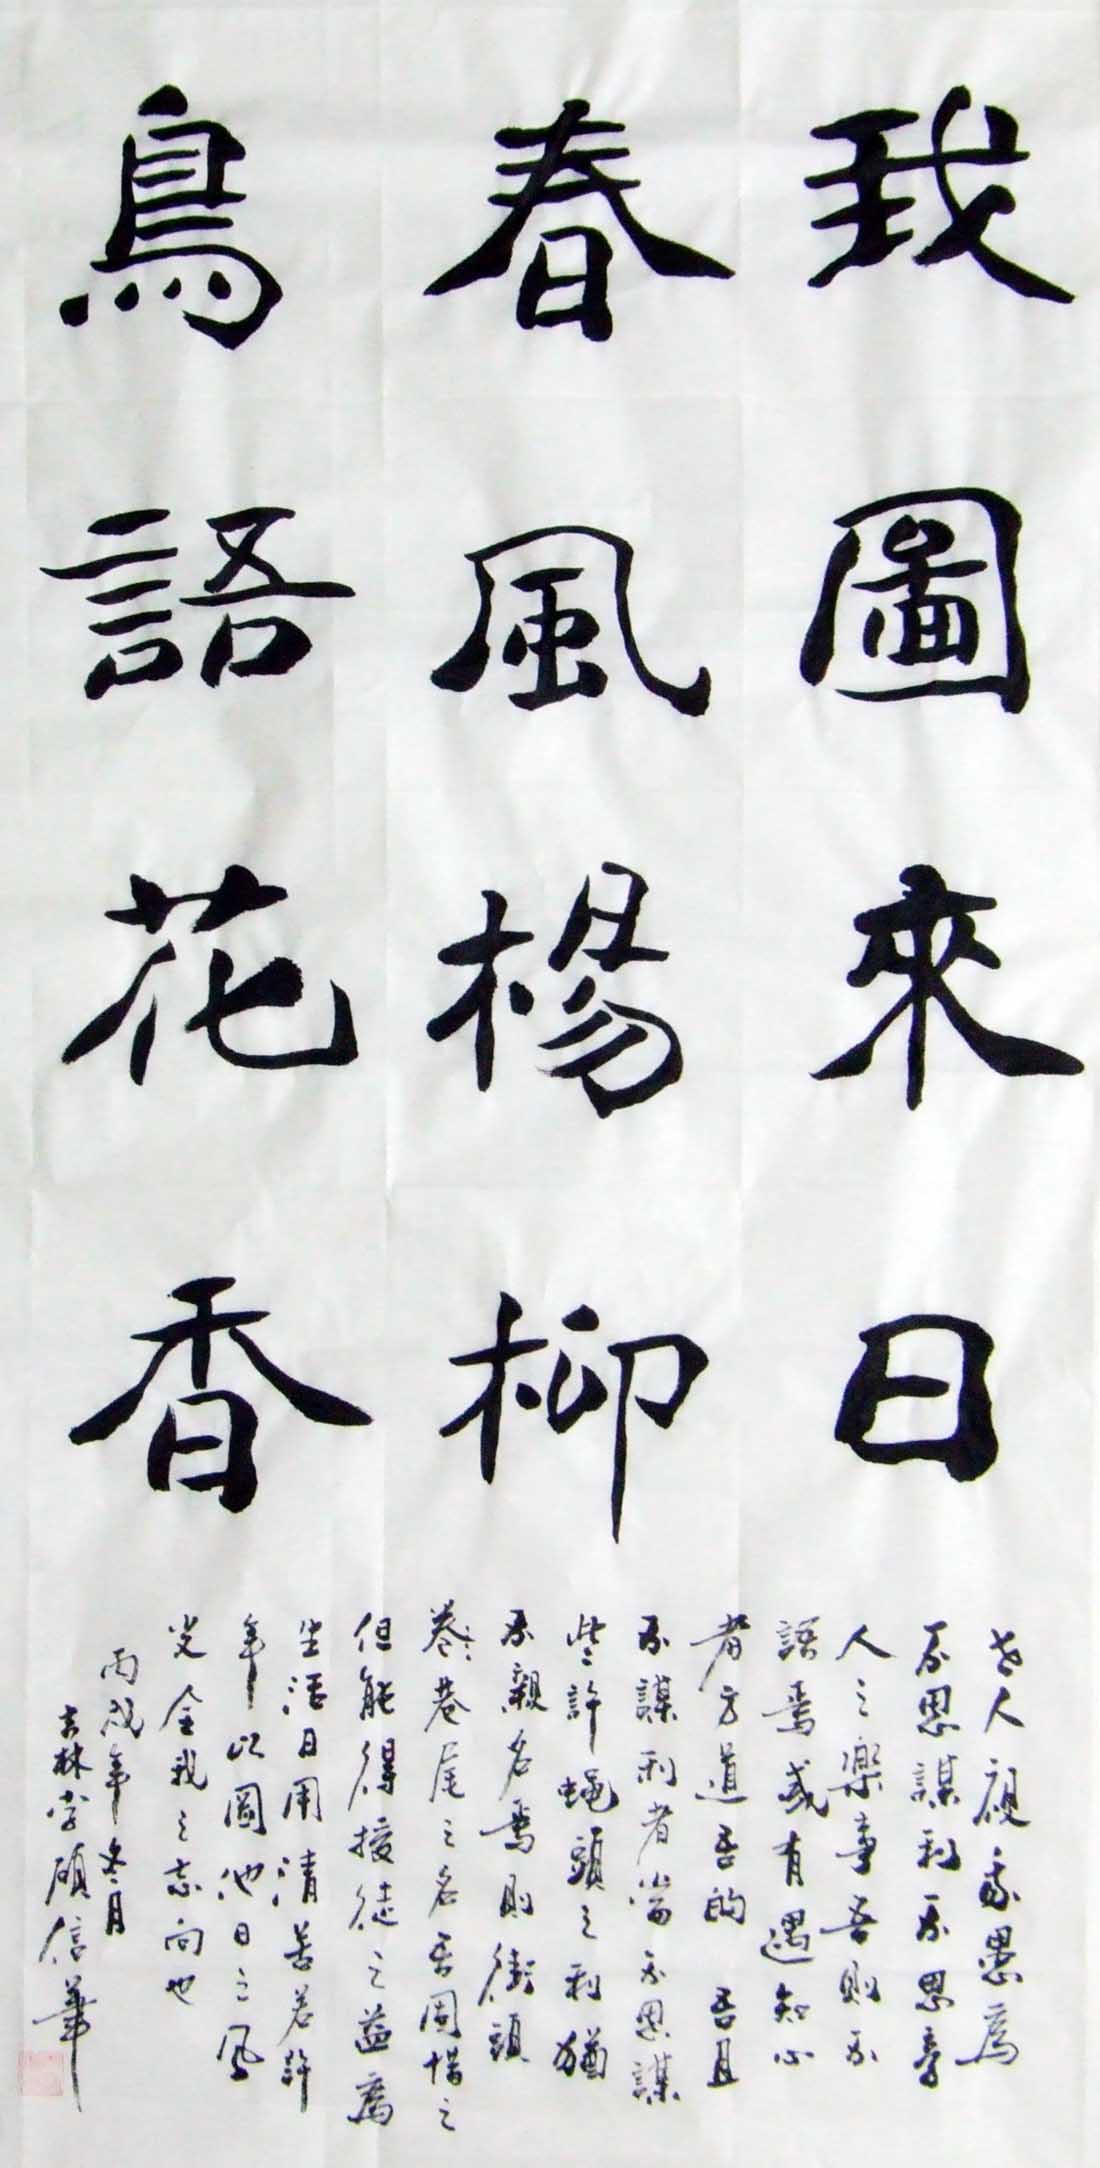 我圖來日
春風楊柳
鳥語花香
世人視我愚為
不思謀利不思享
人之樂事吾則不
語焉或有遇知心
者方道吾的 吾且
不謀利者當不思謀
些許蠅頭之利猶
不親名焉則街頭
巷尾之名吾固惜之
但能得接徒之益為
生活日用清善若許
年以圖他日之風
光全我之志向也
丙戌年冬月
吉林學碩信筆